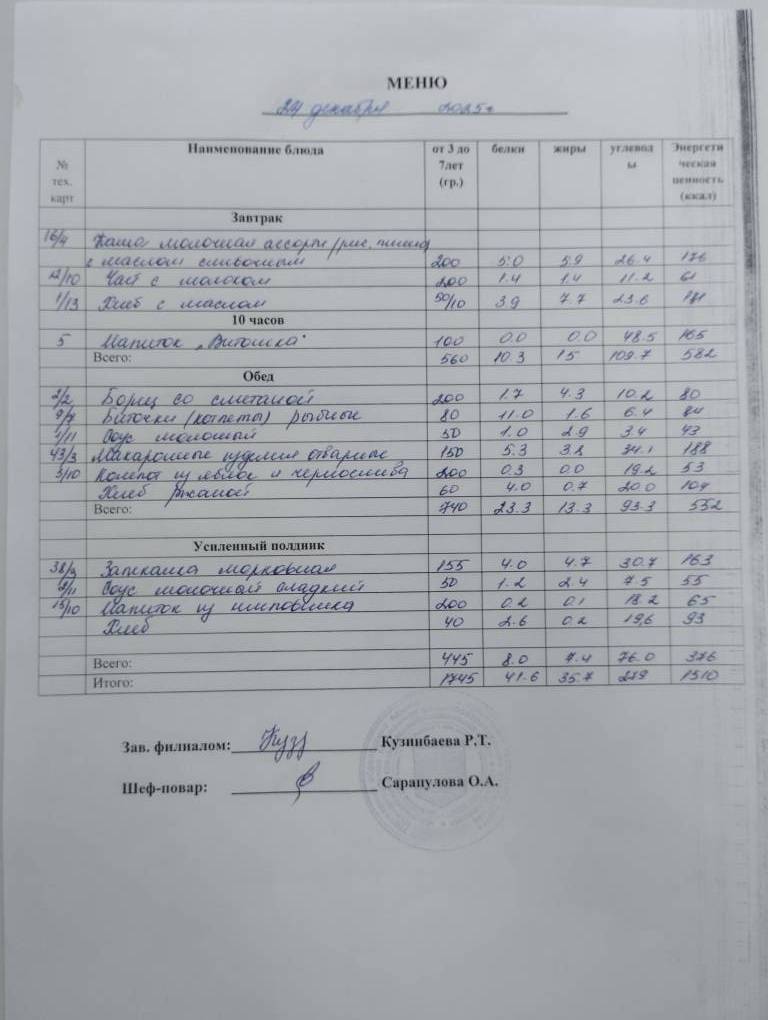 МЕНЮ
24 декабря 2025г
№ тех. карт Наименование блюда от 3 до 7лет (гр.) белки жиры углеводы Энергетическая ценность (ккал)
Завтрак
16/4 Каша молочная ассорти (рис, пшено)
с маслом сливочным 200 5.0 5.9 26.4 176
12/10 Чай с молоком 200 1.4 1.4 11.2 61
1/13 Хлеб с маслом 50/10 3.9 7.7 23.6
10 часов
5 Напиток „Витошка" 100 0.0 0.0 48.5 165
Всего: 560 10.3 15 109.7 582
Обед
2/2 Борщ со сметаной 200 1.7 4.3 10.2 80
9/7 Биточки (котлеты) рыбные 80 11.0 1.6 6.4 84
1/11 Соус молочный 50 1.0 2.9 3.4 43
43/3 Макаронные изделия отварные 150 5.3 3.8 34.1 188
3/10 Компот из яблок и чернослива 200 0.3 0.0 19.2 53
Хлеб ржаной 60 4.0 0.7 20.0 104
Всего: 740 23.3 13.3 93.3 552
Усиленный полдник
38/3 Запеканка морковная 155 4.0 4.7 30.7 163
9/11 Соус молочный сладкий 50 1.2 2.4 7.5 55
15/10 Напиток из шиповника 200 0.2 0.1 18.2 65
Хлеб 40 2.6 0.2 19,6 93
Всего: 445 8.0 7.4 76.0 376
Итого: 1745 41.6 35.7 279 1510
Зав. филиалом: Кузинбаева Р.Т.
Шеф-повар: Сарапулова О.А.